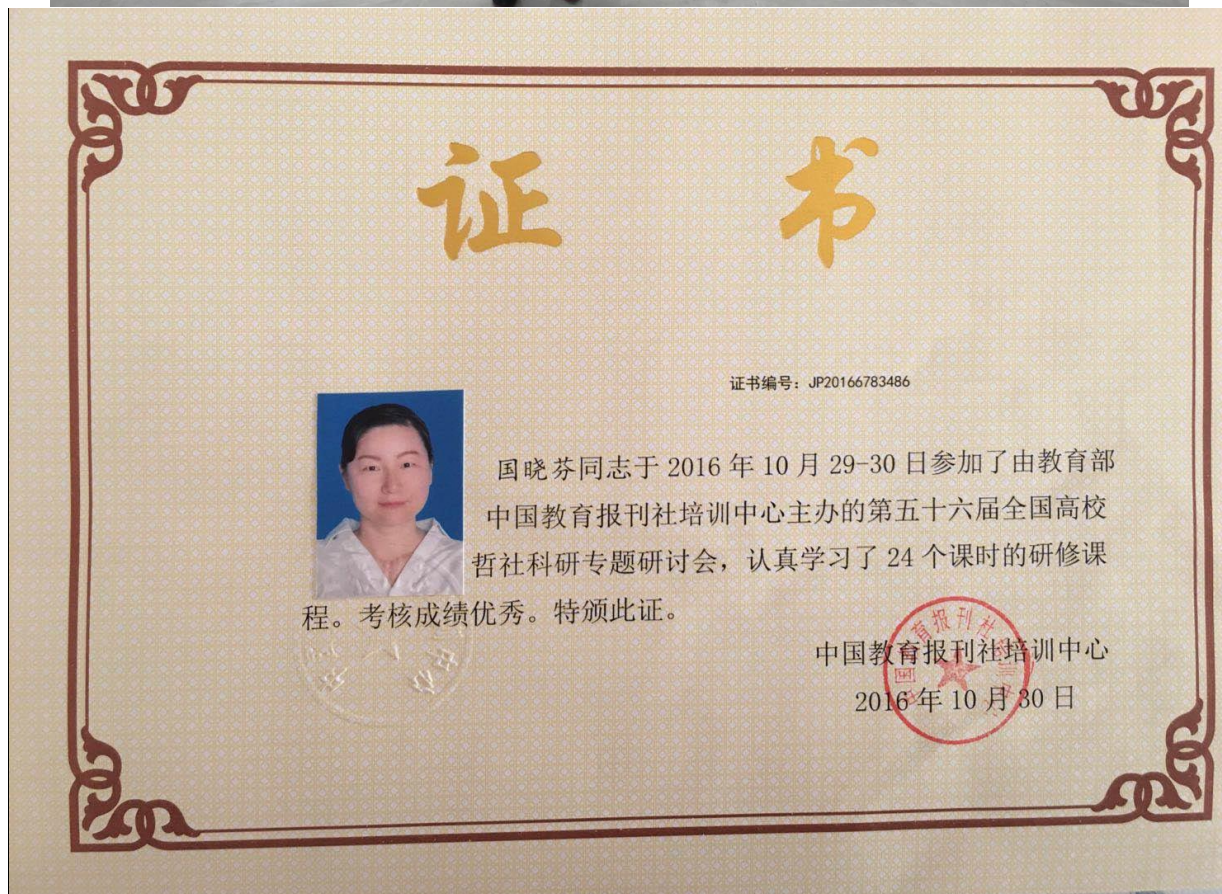 证书
证书编号：JP20166783486
国晓芬同志于 2016 年 10 月 29-30 日参加了由教育部
中国教育报刊社培训中心主办的第五十六届全国高校
哲社科研专题研讨会，认真学习了 24 个课时的研修课
程。考核成绩优秀。特颁此证。
中国教育报刊社培训中心
2016 年 10 月 30 日
中国教育报刊社培训中心